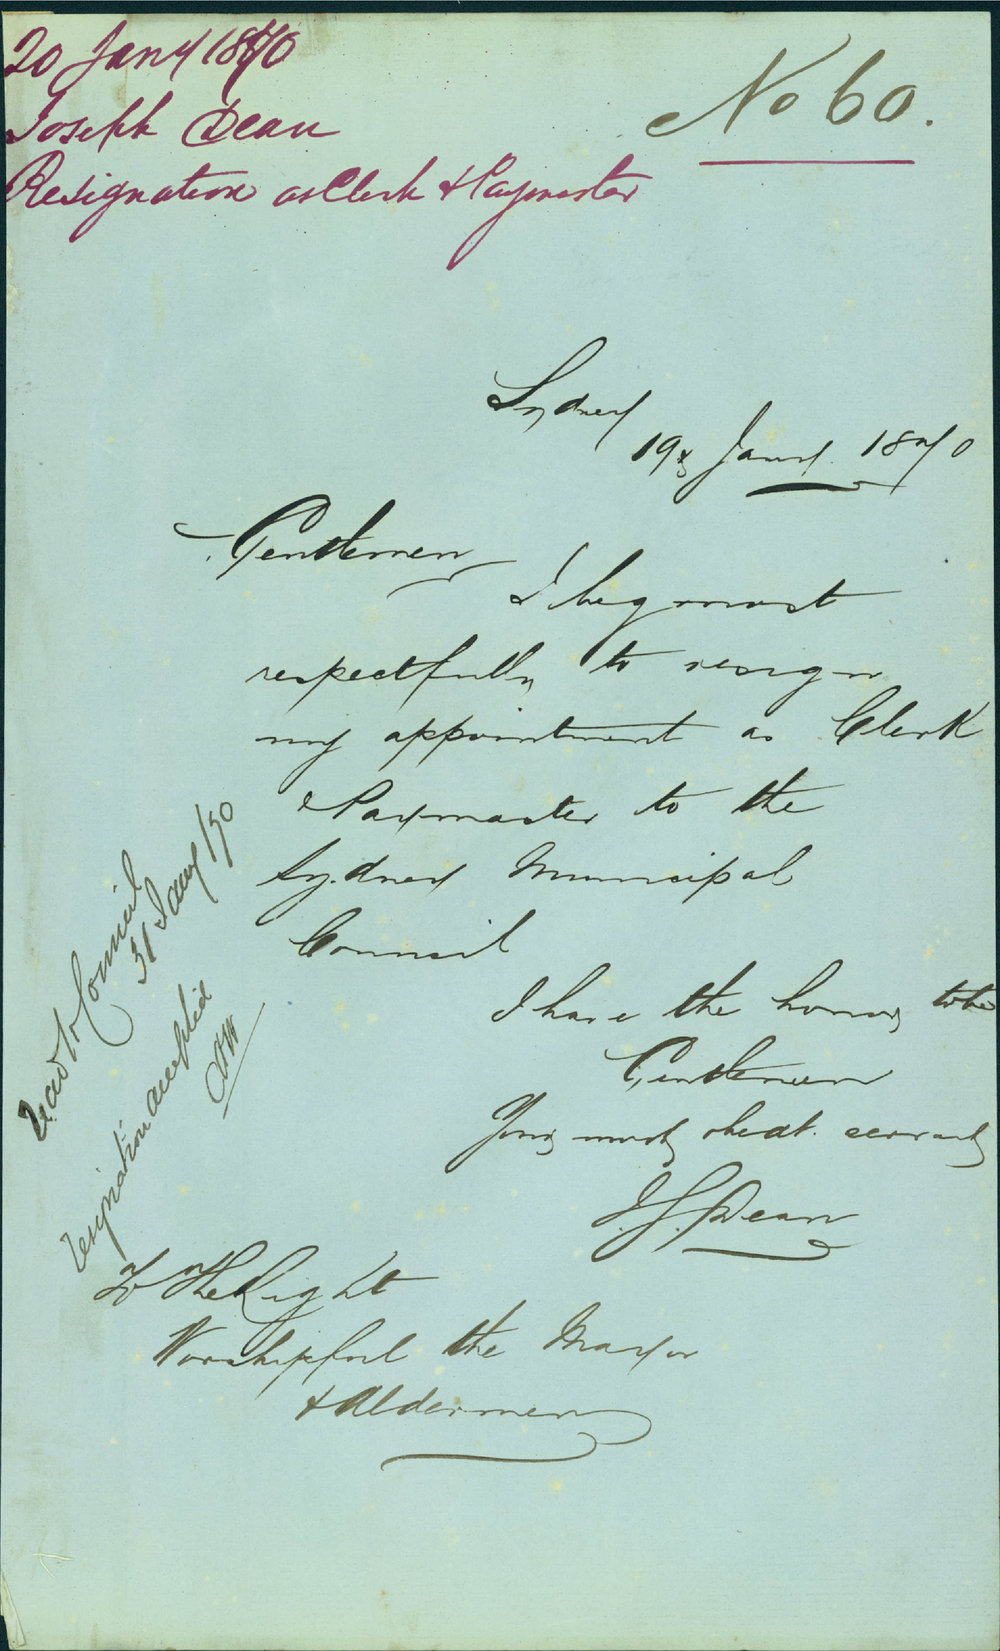 20 Jany 1870
Joseph Dean
Resignation as Clerk & Paymaster
No 60.
Sydney
19th Jany. 1870
Gentlemen
I beg most
respectfully to resign
my appointment as Clerk
& Paymaster to the
Sydney Municipal
Council
I have the honor to be
Gentlemen
Your most obedt. servant
J. S. Dean
To The Right
Worshipful the Mayor
& Aldermen
Read to Council
31 Jany /70
Resignation accepted